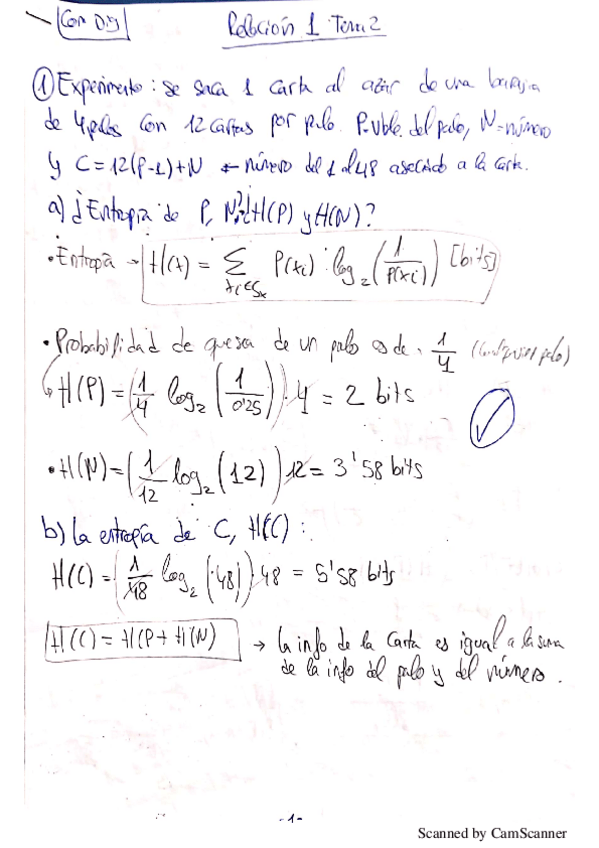 Com Dig
Relación 1 Tema 2
① Experimento: se saca 1 carta al azar de una baraja
de 4 palos con 12 cartas por palo. P=vble. del palo, N=número
y C=12(P-1)+N ← número del 1 al 48 asociado a la carta.
a) ¿Entropía de P, N? ¿H(P) y H(N)?
• Entropía → H(x) = Σ xi∈Sx P(xi) · log₂(1/P(xi)) [bits]
• Probabilidad de que sea de un palo es de 1/4 (cualquier palo)
H(P) = (1/4 log₂(1/0'25)) · 4 = 2 bits
• H(N) = (1/12 log₂(12)) 12 = 3'58 bits
b) La entropía de C, H(C):
H(C) = (1/48 log₂(48)) 48 = 5'58 bits
H(C) = H(P + H(N) → la info de la carta es igual a la suma
de la info del palo y del número.
-1-
Scanned by CamScanner